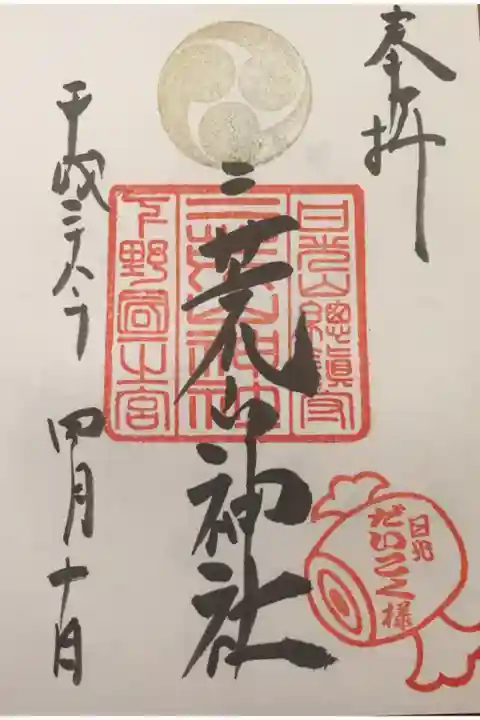 奉拝
日光山總鎮守
二荒山神社
下野國一之宮
二荒山神社
平成二十八年
四月十日
日光
だいこく様